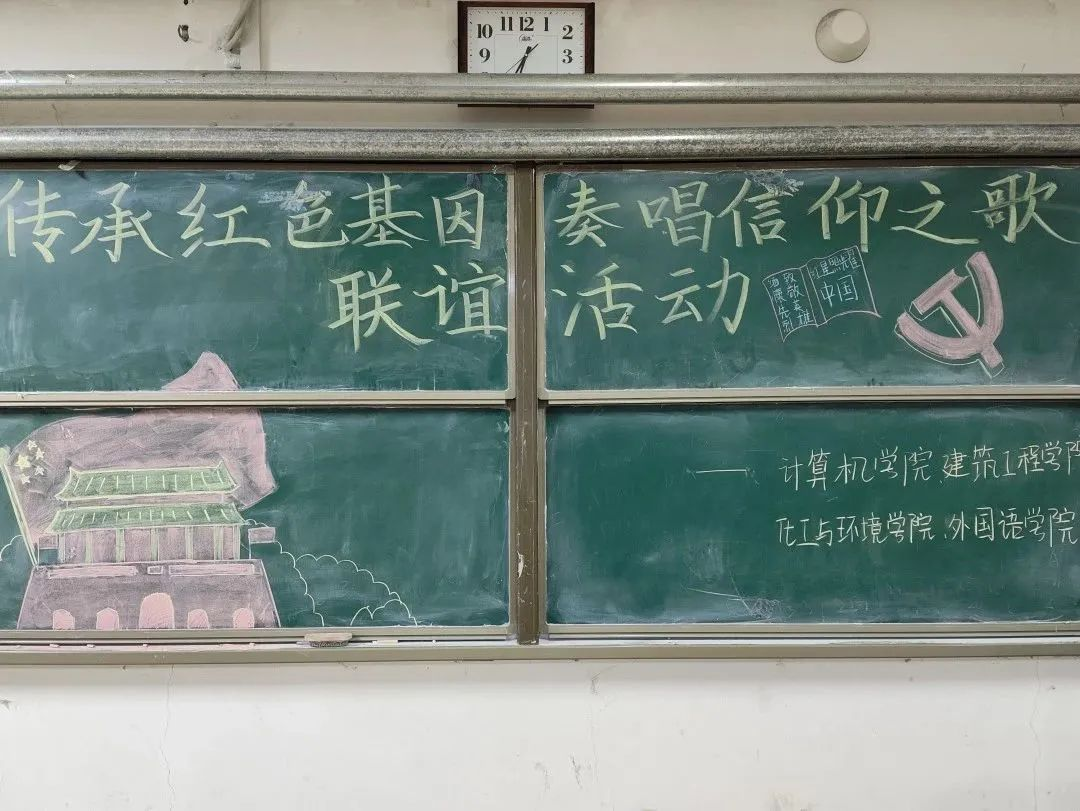 10 11 12 1 2
9 3
传承红色基因 奏唱信仰之歌
联谊活动
致敬英雄
缅怀先烈
红星照耀
中国
— 计算机学院、建筑工程学院
化工与环境学院、外国语学院